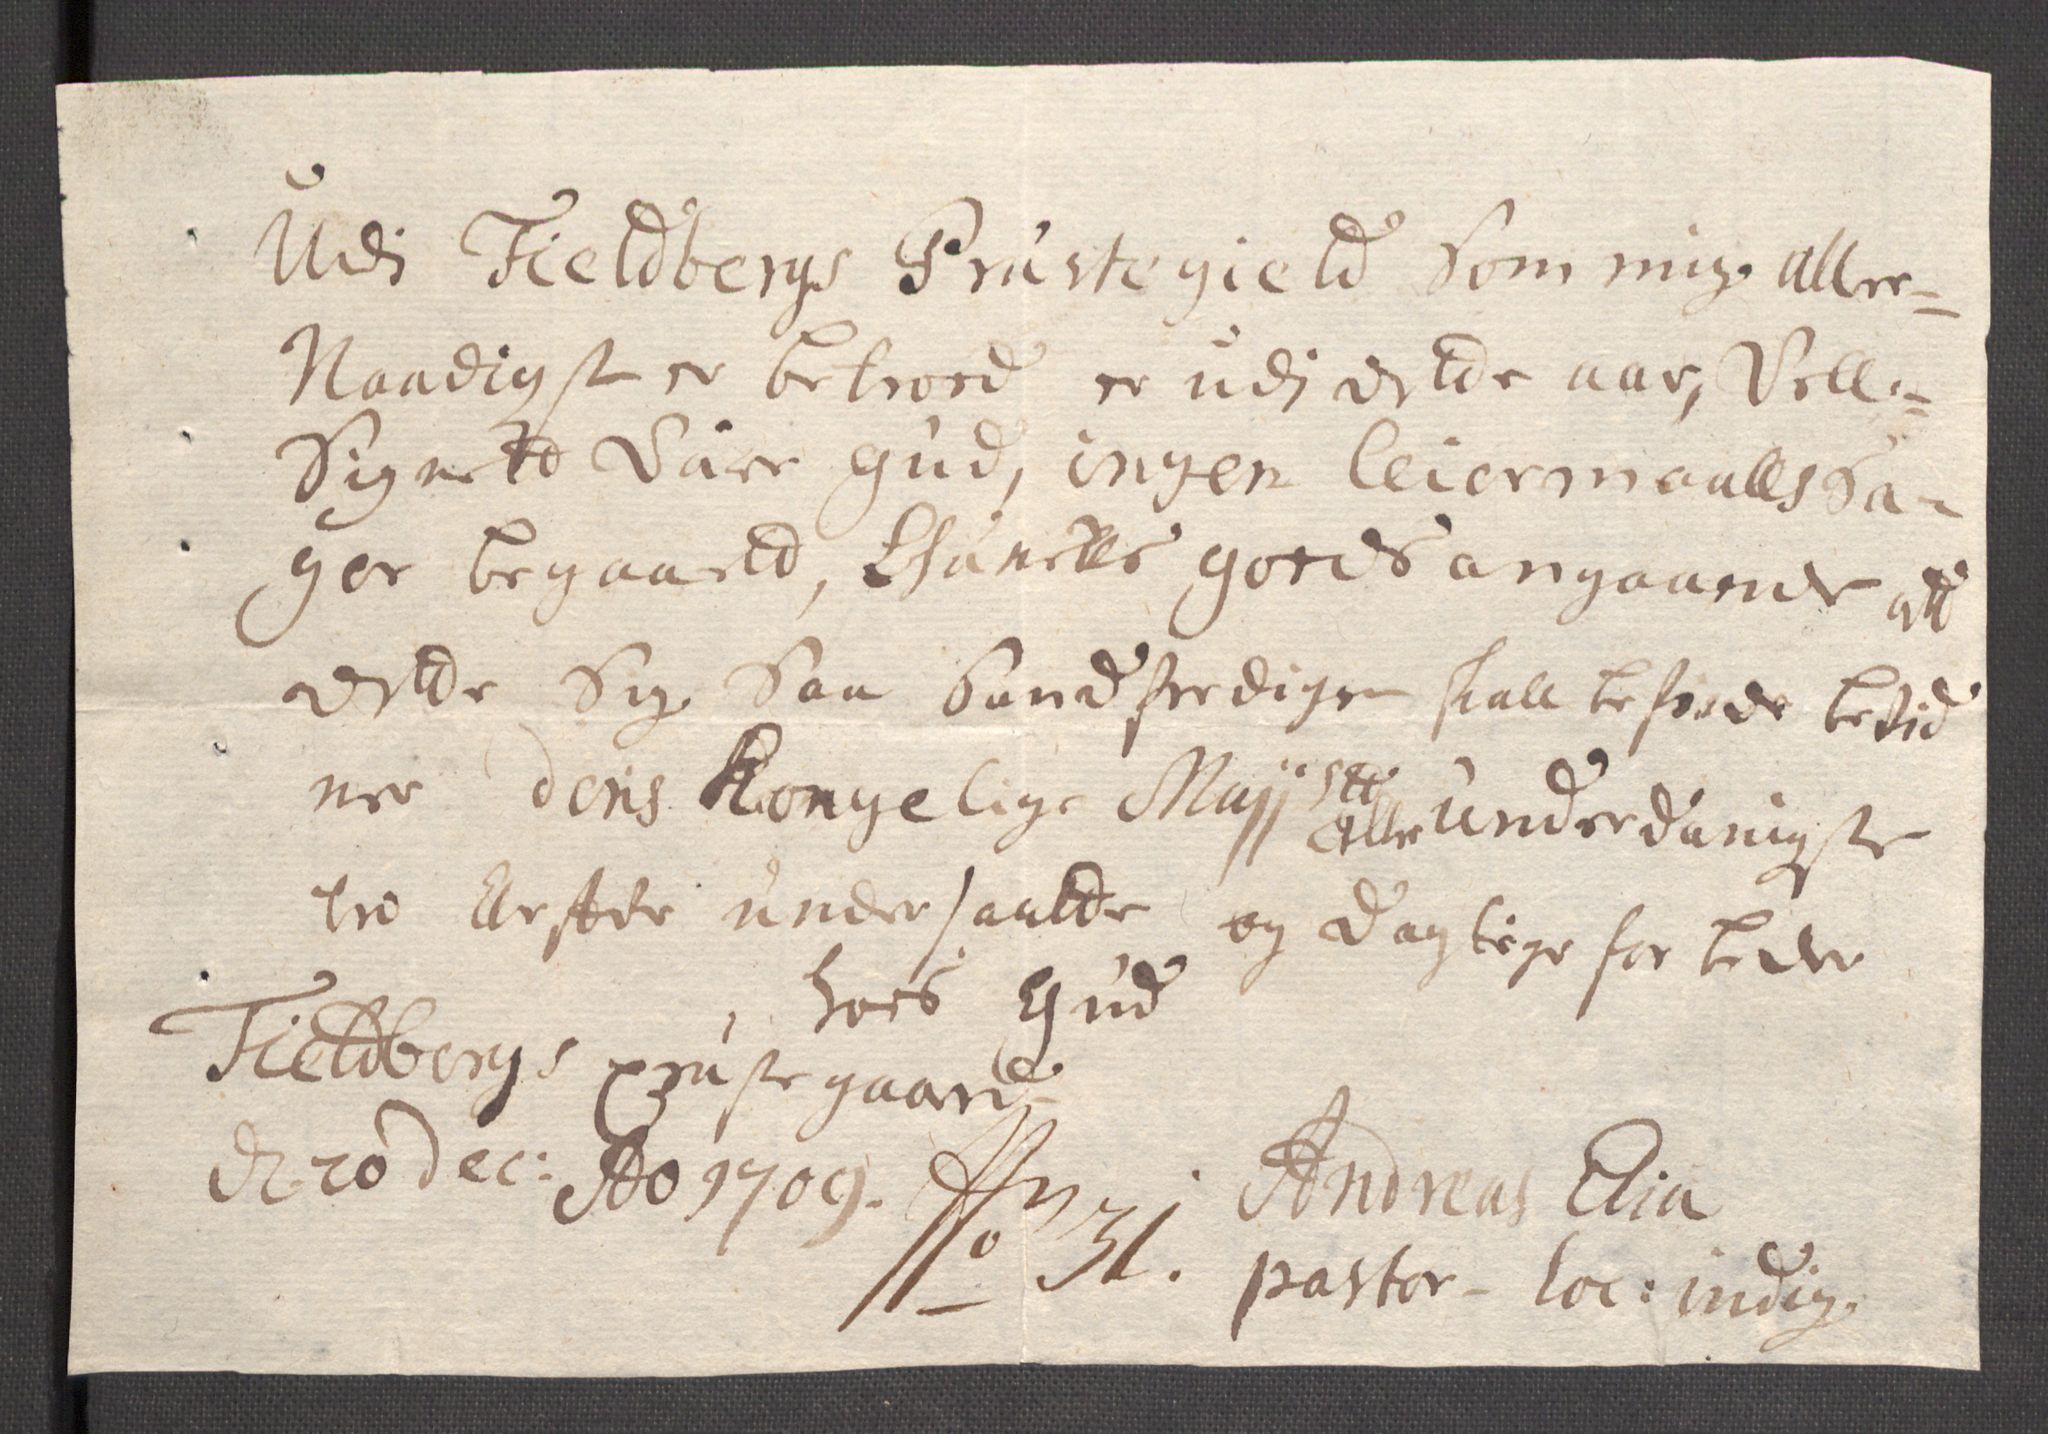 Udi Fieldbergs Prùstegield som mig aller=
Naadigst er betroed er udj dette aar, Vell=
Signett være Gud, ingen leiermaalls sa-
ger begaaett, goeds angaaende att
dette sig saa sandferdigen skall befindes bevid
ner dens Kongelige Majjstt allerunderdanigste
tro underSaatte og daglige for beder
hoes Gud
Fieldbergs prustegaard
d. 20 Dec: Ao 1709.
No 31.
Andreas Elia
pastor loc: indig.